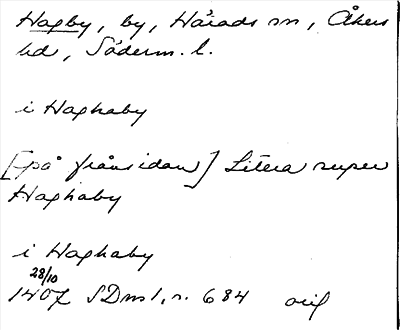 Hagby, by, Härads sn, Åkers
hd, Söderm. l.
i Haghaby
[på frånsidan] Litera super
Haghaby
i Haghaby
28/10
1407 SDns 1, s. 684 orig